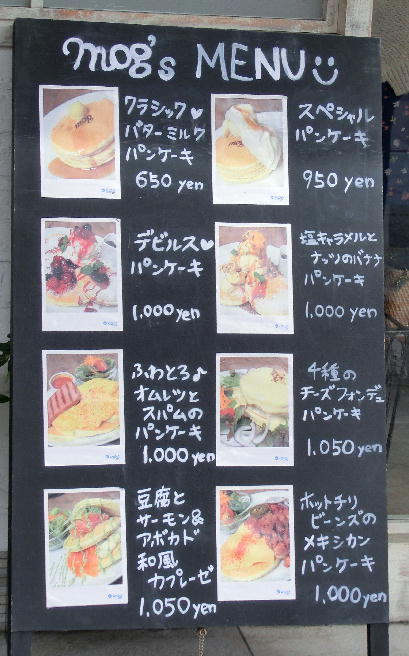 mog's MENU
クラシック♥
バターミルク
パンケーキ
650 yen
スペシャル
パンケーキ
950 yen
デビルス♥
パンケーキ
1,000yen
塩キャラメルと
ナッツのバナナ
パンケーキ
1,000 yen
ふわとろ♪
オムレツと
スパムの
パンケーキ
1,000 yen
4種の
チーズフォンデュ
パンケーキ
1,050 yen
豆腐と
サーモン&
アボカド
和風
カプレーゼ
1,050 yen
ホットチリ
ビーンズの
メキシカン
パンケーキ
1,000 yen